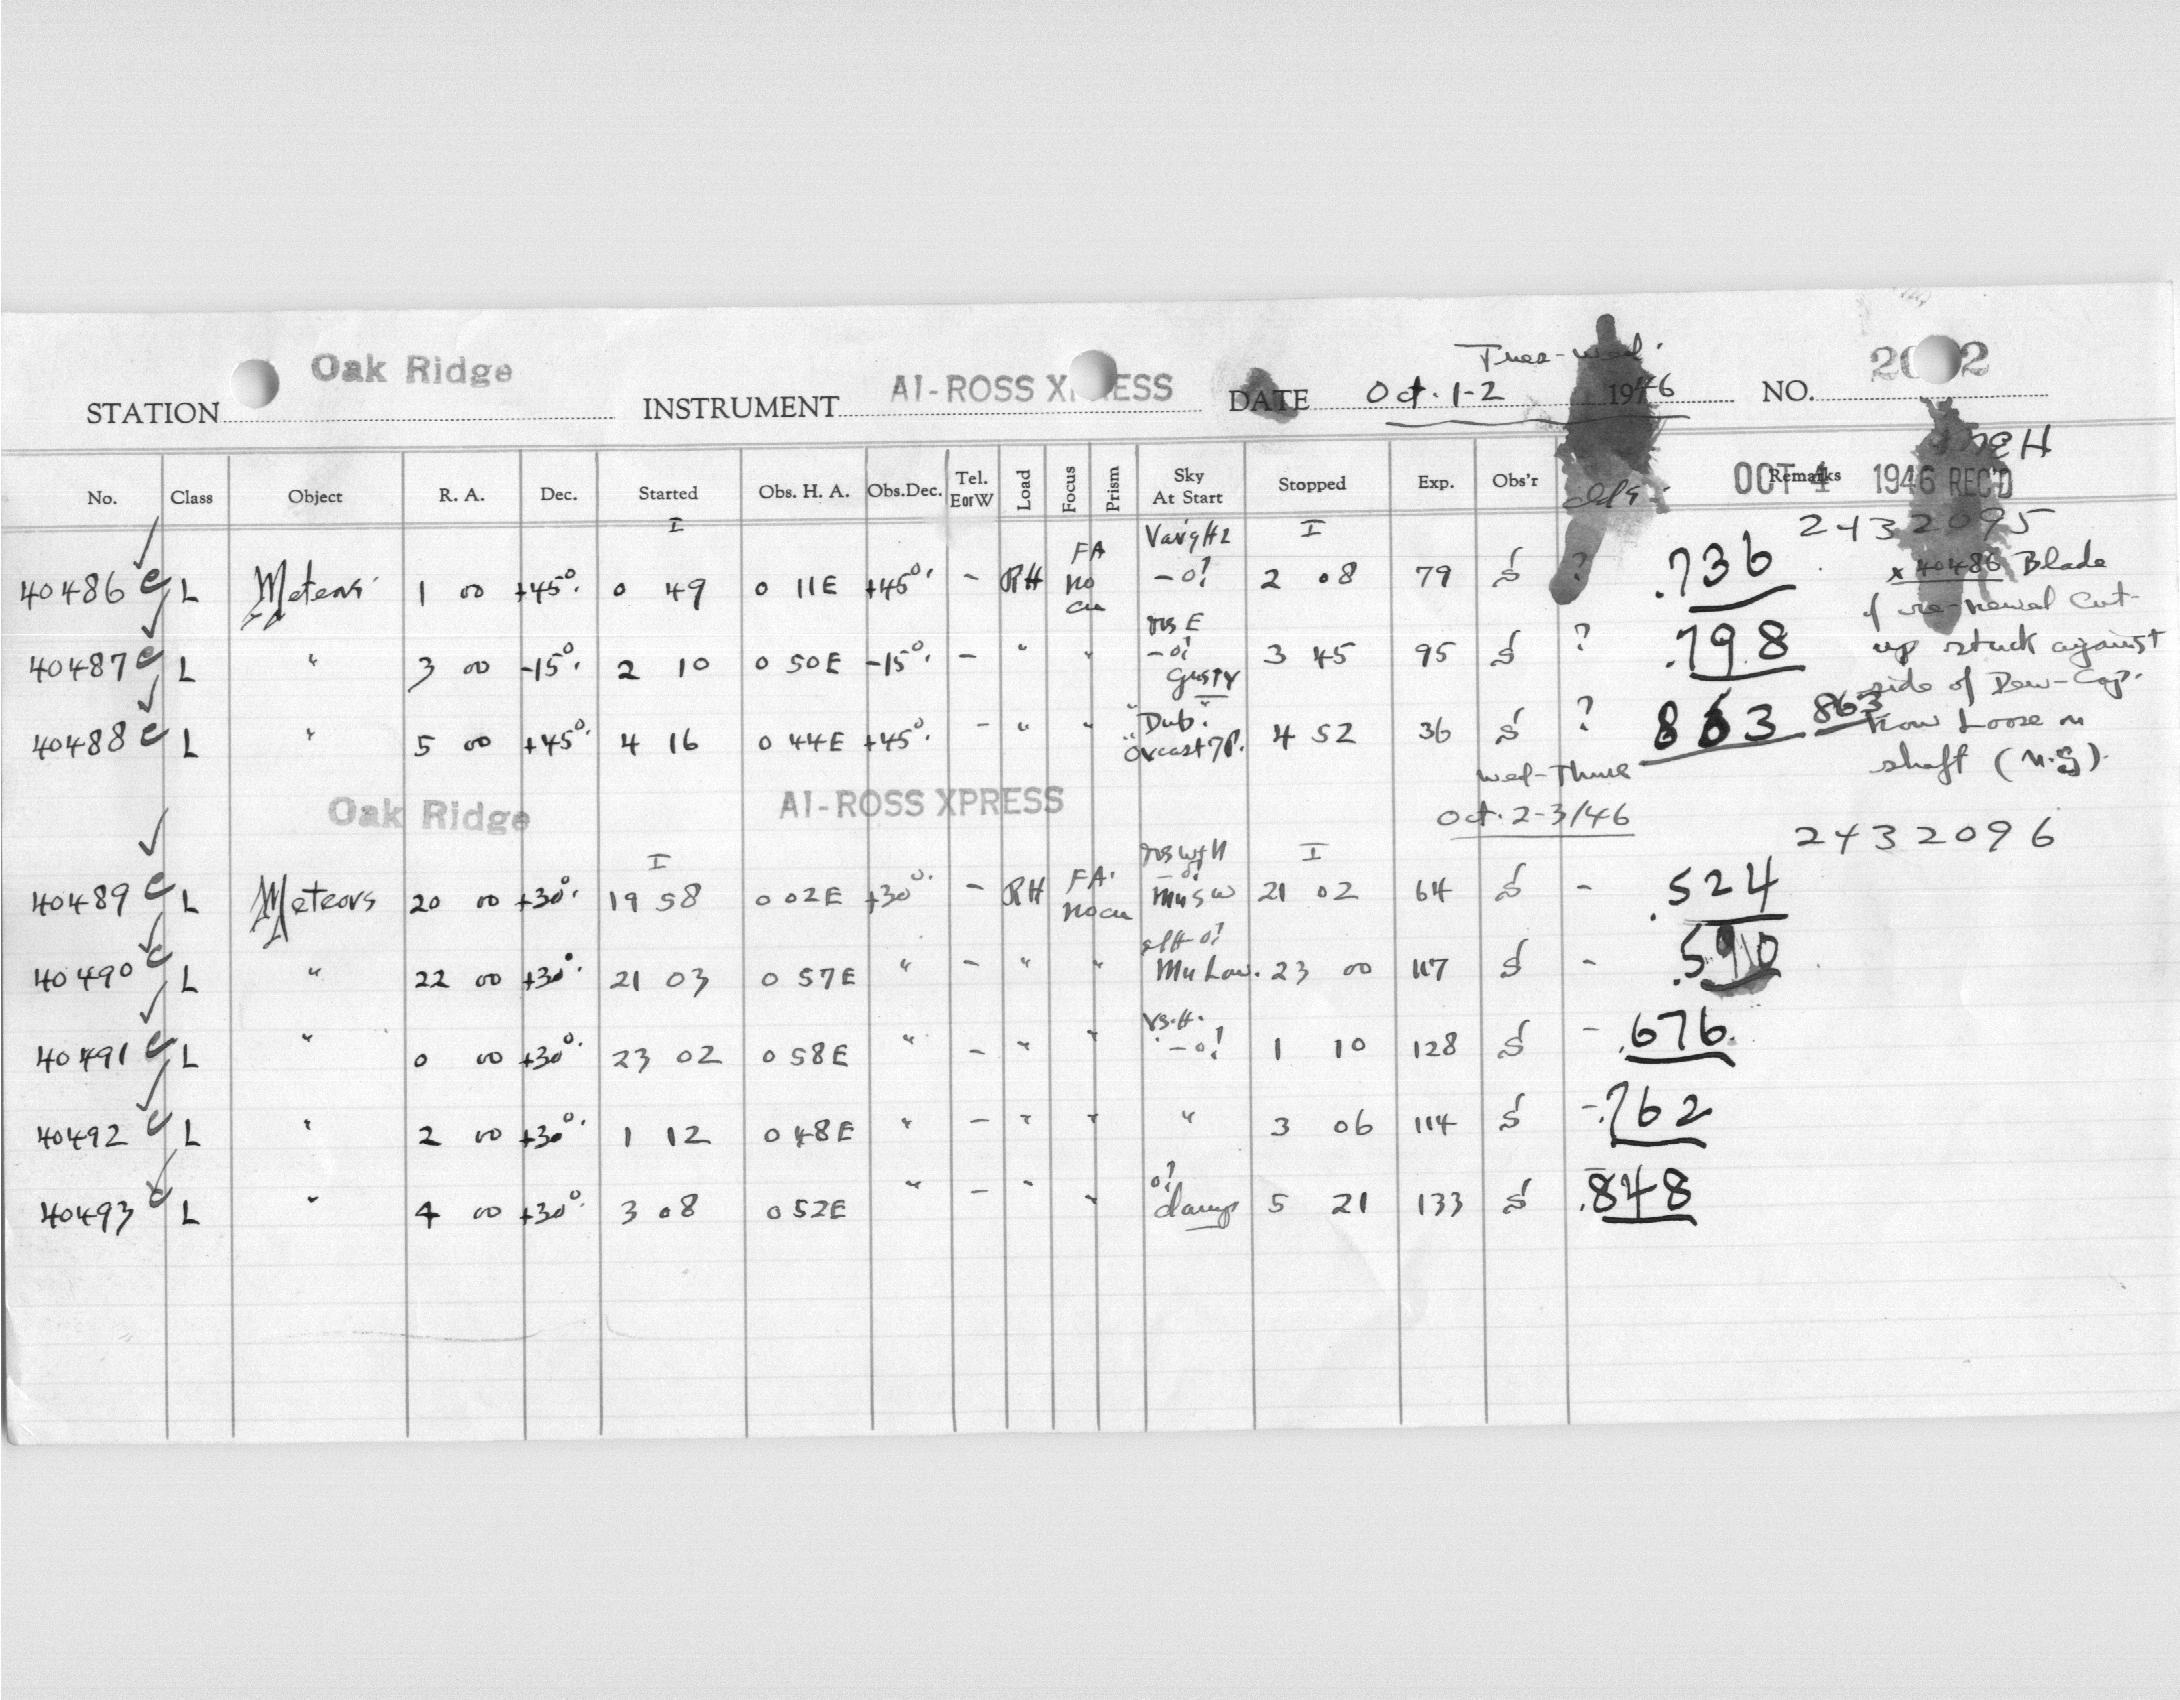 Oak Ridge AI-ROSS XPRESS Tues-Wed. 2
STATION INSTRUMENT DATE Oct. 1-2 1946 NO.
No. Class Object R. A. Dec. Started Obs. H. A. Obs.Dec. Tel. EorW Load Focus Prism Sky At Start Stopped Exp. Obs'r Remarks
OCT 4 1946 REC'D
I I 2432095
40486 L Meteors 1 00 +45°. 0 49 0 11E +45°. - RH FA no -0? 2 08 79 S ? .736 x 40486 Blade
of re-newal cut-
40487 L " 3 00 -15°. 2 10 0 50E -15°. - " " -0? Gusty 3 45 95 S ? .798 up stuck against
side of Dew-Cap.
40488 L " 5 00 +45°. 4 16 0 44E +45°. - " " "Dub." 4 52 36 S ? 863 863 now Loose on
shaft (N.G).
Wed-Thurs
Oak Ridge AI-ROSS XPRESS Oct. 2-3/46
I I 2432096
40489 L Meteors 20 00 +30°. 19 58 0 02E +30°. - RH FA. no 21 02 64 S - .524
40490 L " 22 00 +30°. 21 03 0 57E " - " " Low. 23 00 117 S - .590
40491 L " 0 00 +30°. 23 02 0 58E " - " " -0? 1 10 128 S - .676.
40492 L " 2 00 +30°. 1 12 0 48E " - " " " 3 06 114 S - .762
40493 L " 4 00 +30°. 3 08 0 52E " - " " 0? damp 5 21 133 S - .848